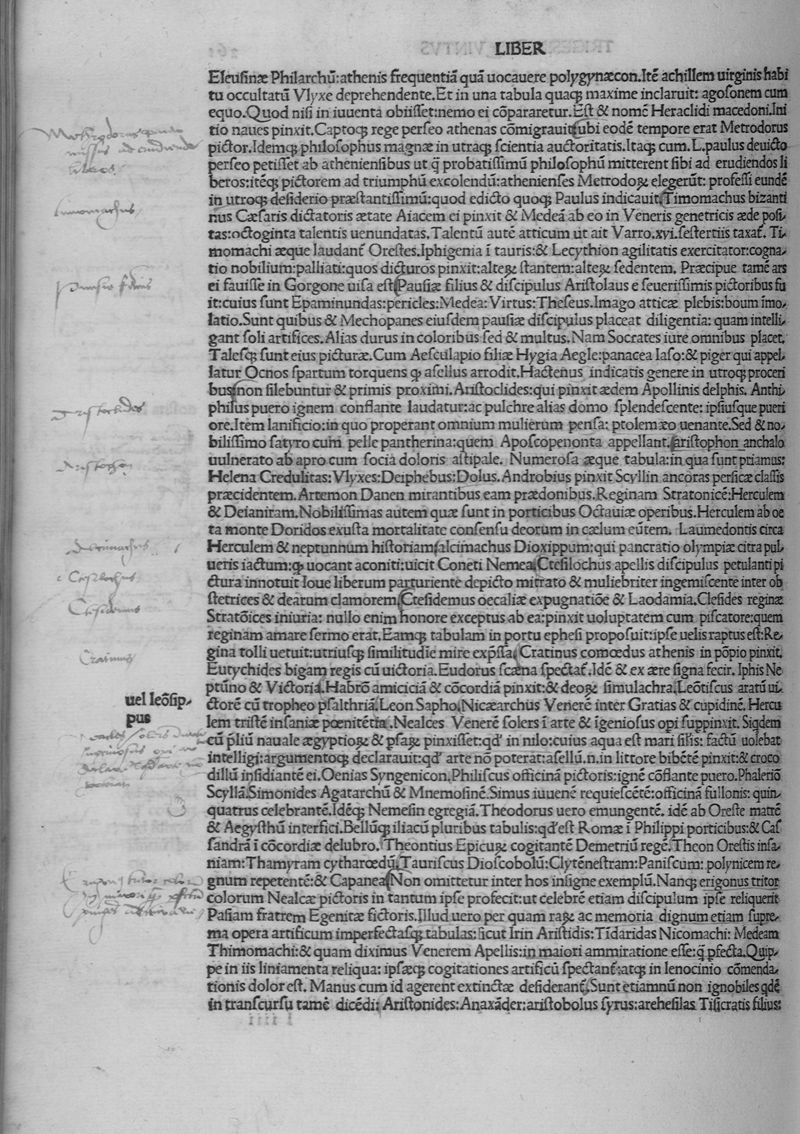 LIBER
Eleusinæ Philarchū:athenis frequentiā quā uocauere polygynæcon.Itē achillem uirginis habi
tu occultatū Vlyxe deprehendente.Et in una tabula quaqȝ maxime inclaruit: agosonem cum
equo.Quod nisi in iuuenta obiisset:nemo ei cōpararetur.Est & nomē Heraclidi macedoni.Ini
tio naues pinxit.Captoqȝ rege perseo athenas cōmigrauit:ubi eodē tempore erat Metrodorus
pictor.Idemqȝ philosophus magnæ in utraqȝ scientia auctoritatis.Itaqȝ cum.L.paulus deuicto
perseo petisset ab atheniensibus ut q̄ probatissimū philosophū mitterent sibi ad erudiendos li
beros:itēqȝ pictorem ad triumphū excolendū:athenienses Metrodoꝝ elegerūt: professi eundē
in utroqȝ desiderio præstantissimū:quod edicto quoqȝ Paulus indicauit.Timomachus bizanti
nus Cæsaris dictatoris ætate Aiacem ei pinxit & Medeā ab eo in Veneris genetricis æde posi
tas:octoginta talentis uenundatas.Talentū autē atticum ut ait Varro.xvi.sestertiis taxat̄. Ti
momachi æque laudant̄ Orestes.Iphigenia ī tauris:& Lecythion agilitatis exercitator:cogna
tio nobilium:palliati:quos dicturos pinxit:alteꝝ stantem:alteꝝ sedentem. Præcipue tamē ars
ei fauisse in Gorgone uisa est.Pausiæ filius & discipulus Aristolaus e seuerissimis pictoribus fu
it:cuius sunt Epaminundas:pericles:Medea:Virtus:Theseus.Imago atticæ plebis:boum īmo
latio.Sunt quibus & Mechopanes eiusdem pausiæ discipulus placeat diligentia: quam intelli
gant soli artifices.Alias durus in coloribus sed & multus. Nam Socrates iure omnibus placet.
Talesqȝ sunt eius picturæ.Cum Aesculapio filiæ Hygia Aegle:panacea Iaso:& piger qui appel
latur Ocnos spartum torquens qȝ asellus arrodit.Hactenus indicatis genere in utroqȝ proceri
bus:non silebuntur & primis proximi.Aristoclides:qui pinxit ædem Apollinis delphis. Anthi
philus puero ignem conflante laudatur:ac pulchre alias domo splendescente: ipsiusque pueri
ore.Item lanificio:in quo properant omnium mulierum pensa: ptolemæo uenante.Sed & no
bilissimo satyro cum pelle pantherina:quem Aposcopenonta appellant.aristophon anchalo
uulnerato ab apro cum socia doloris astipale. Numerosa æque tabula:in qua sunt priamus:
Helena Credulitas:Vlyxes:Deiphebus:Dolus.Androbius pinxit Scyllin ancoras persicæ classis
præcidentem.Artemon Danen mirantibus eam prædonibus.Reginam Stratonicē:Herculem
& Deianiram.Nobilissimas autem quæ sunt in porticibus Octauiæ operibus.Herculem ab oe
ta monte Doridos exusta mortalitate consensu deorum in cælum eūtem. Laumedontis circa
Herculem & neptunnum historiam.alcimachus Dioxippum:qui pancratio olympiæ citra pul
ueris iactum:qȝ uocant aconiti:uicit Coneti Nemea.Ctesilochus apellis discipulus petulanti pi
ctura innotuit Ioue liberum parturiente depicto mitrato & muliebriter ingemiscente inter ob
stetrices & dearum clamorem.Ctesidemus oecaliæ expugnatiōe & Laodamia.Clesides reginæ
Stratōices iniuria: nullo enim honore exceptus ab ea:pinxit uoluptatem cum piscatore:quem
reginam amare sermo erat.Eamqȝ tabulam in portu ephesi proposuit:ipse uelis raptus est:Re
gina tolli uetuit:utriusqȝ similitudīe mire exp̄ssa.Cratinus comœdus athenis in pōpio pinxit.
Eutychides bigam regis cū uictoria.Eudorus scæna spectat̄.Idē & ex ære signa fecit. Iphis Ne
ptūno & Victoriā.Habrō amiciciā & cōcordiā pinxit:& deoꝝ simulachra.Leōtiscus aratū ui
uel leōsip
pus
ctorē cū tropheo psalthriā.Leon Sapho.Nicæarchus Venerē inter Gratias & cupidinē. Hercu
lem tristē insaniæ pœnitētia.Nealces Venerē solers ī arte & īgeniosus opi suppinxit. Siqdem
cū p̄liū nauale ægyptioꝝ & psaꝝ pinxisset:qd' in nilo:cuius aqua est mari silis: factū uolebat
intelligi:argumentoqȝ declarauit:qd' arte nō poterat:asellū.n.in littore bibētē pinxit:& croco
dillū insidiantē ei.Oenias Syngenicon.Philiscus officinā pictoris:ignē cōflante puero.Phaleriō
Scyllā.Simonides Agatarchū & Mnemosinē.Simus iuuenē requiescētē:officinā fullonis: quin
quatrus celebrantē.Idēqȝ Nemesin egregiā.Theodorus uero emungentē. idē ab Oreste matrē
& Aegysthū interfici.Bellūqȝ iliacū pluribus tabulis:qd'est Romæ ī Philippi porticibus:& Cas
sandrā ī cōcordiæ delubro.Theontius Epicuꝝ cogitantē Demetriū regē.Theon Orestis insa
niam:Thamyram cytharœdū.Tauriscus Dioscobolū:Clytēnestram:Paniscum: polynicem re
gnum repetentē:& Capanea.Non omittetur inter hos insigne exemplū.Nanqȝ erigonus tritor
colorum Nealcæ pictoris in tantum ipse profecit:ut celebrē etiam discipulum ipse reliquerit
Pasiam fratrem Egenitæ fictoris.Illud uero per quam raꝝ ac memoria dignum etiam supre
ma opera artificum imperfectasqȝ tabulas: sicut Irin Aristidis:Tīdaridas Nicomachi: Medeam
Thimomachi:& quam diximus Venerem Apellis:in maiori ammiratione esse:q̄ pfecta.Quip
pe in iis liniamenta reliqua: ipsæqȝ cogitationes artificū spectant̄:atqȝ in lenocinio cōmenda
tionis dolor est. Manus cum id agerent extinctæ desiderant̄.Sunt etiamnū non ignobiles qdē
in transcursu tamē dicēdi: Aristonides:Anaxāder:aristobolus syrus:arehesilas Tisicratis filius: